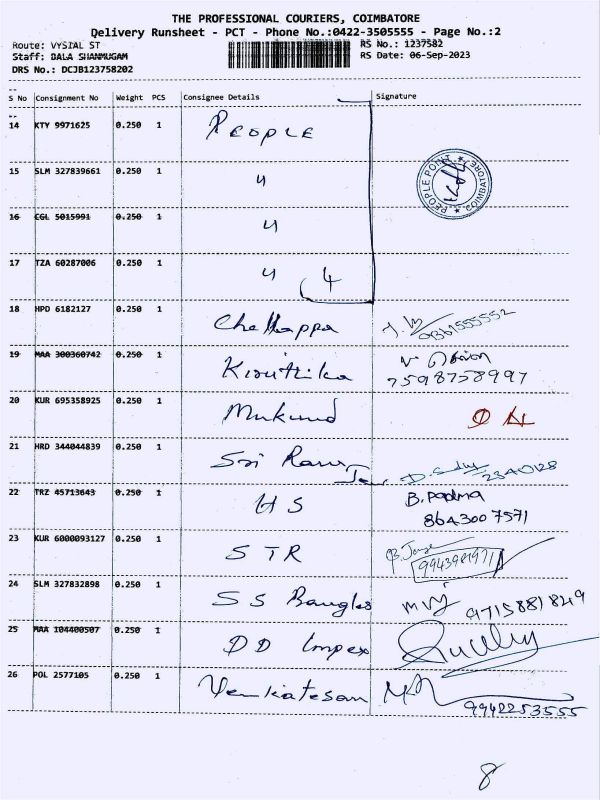 THE PROFESSIONAL COURIERS, COIMBATORE
Delivery Runsheet - PCT - Phone No.:0422-3505555 - Page No.:2
Route: VYSIAL ST RS No.: 1237582
Staff: BALA SHANMUGAM RS Date: 06-Sep-2023
DRS No.: DCJB123758202
S No Consignment No Weight PCS Consignee Details Signature
14 KTY 9971625 0.250 1 PEOPLE
15 SLM 327839661 0.250 1 "
PEOPLE POINT COIMBATORE
16 CGL 5015991 0.250 1 "
17 TZA 60287006 0.250 1 " 4
18 HPD 6182127 0.250 1 Chellappa
19 MAA 300360742 0.250 1 Kiruthika 7598758997
20 KUR 695358925 0.250 1 Mukund
21 HRD 344044839 0.250 1 Sri Ram
22 TRZ 45713643 0.250 1 US B. Padma
8643007571
23 KUR 6000093127 0.250 1 STR 9943981971
24 SLM 327832898 0.250 1 SS Bangles 9715881849
25 MAA 104400507 0.250 1 DD Impex
26 POL 2577105 0.250 1 Venkatesan 9942253555
8